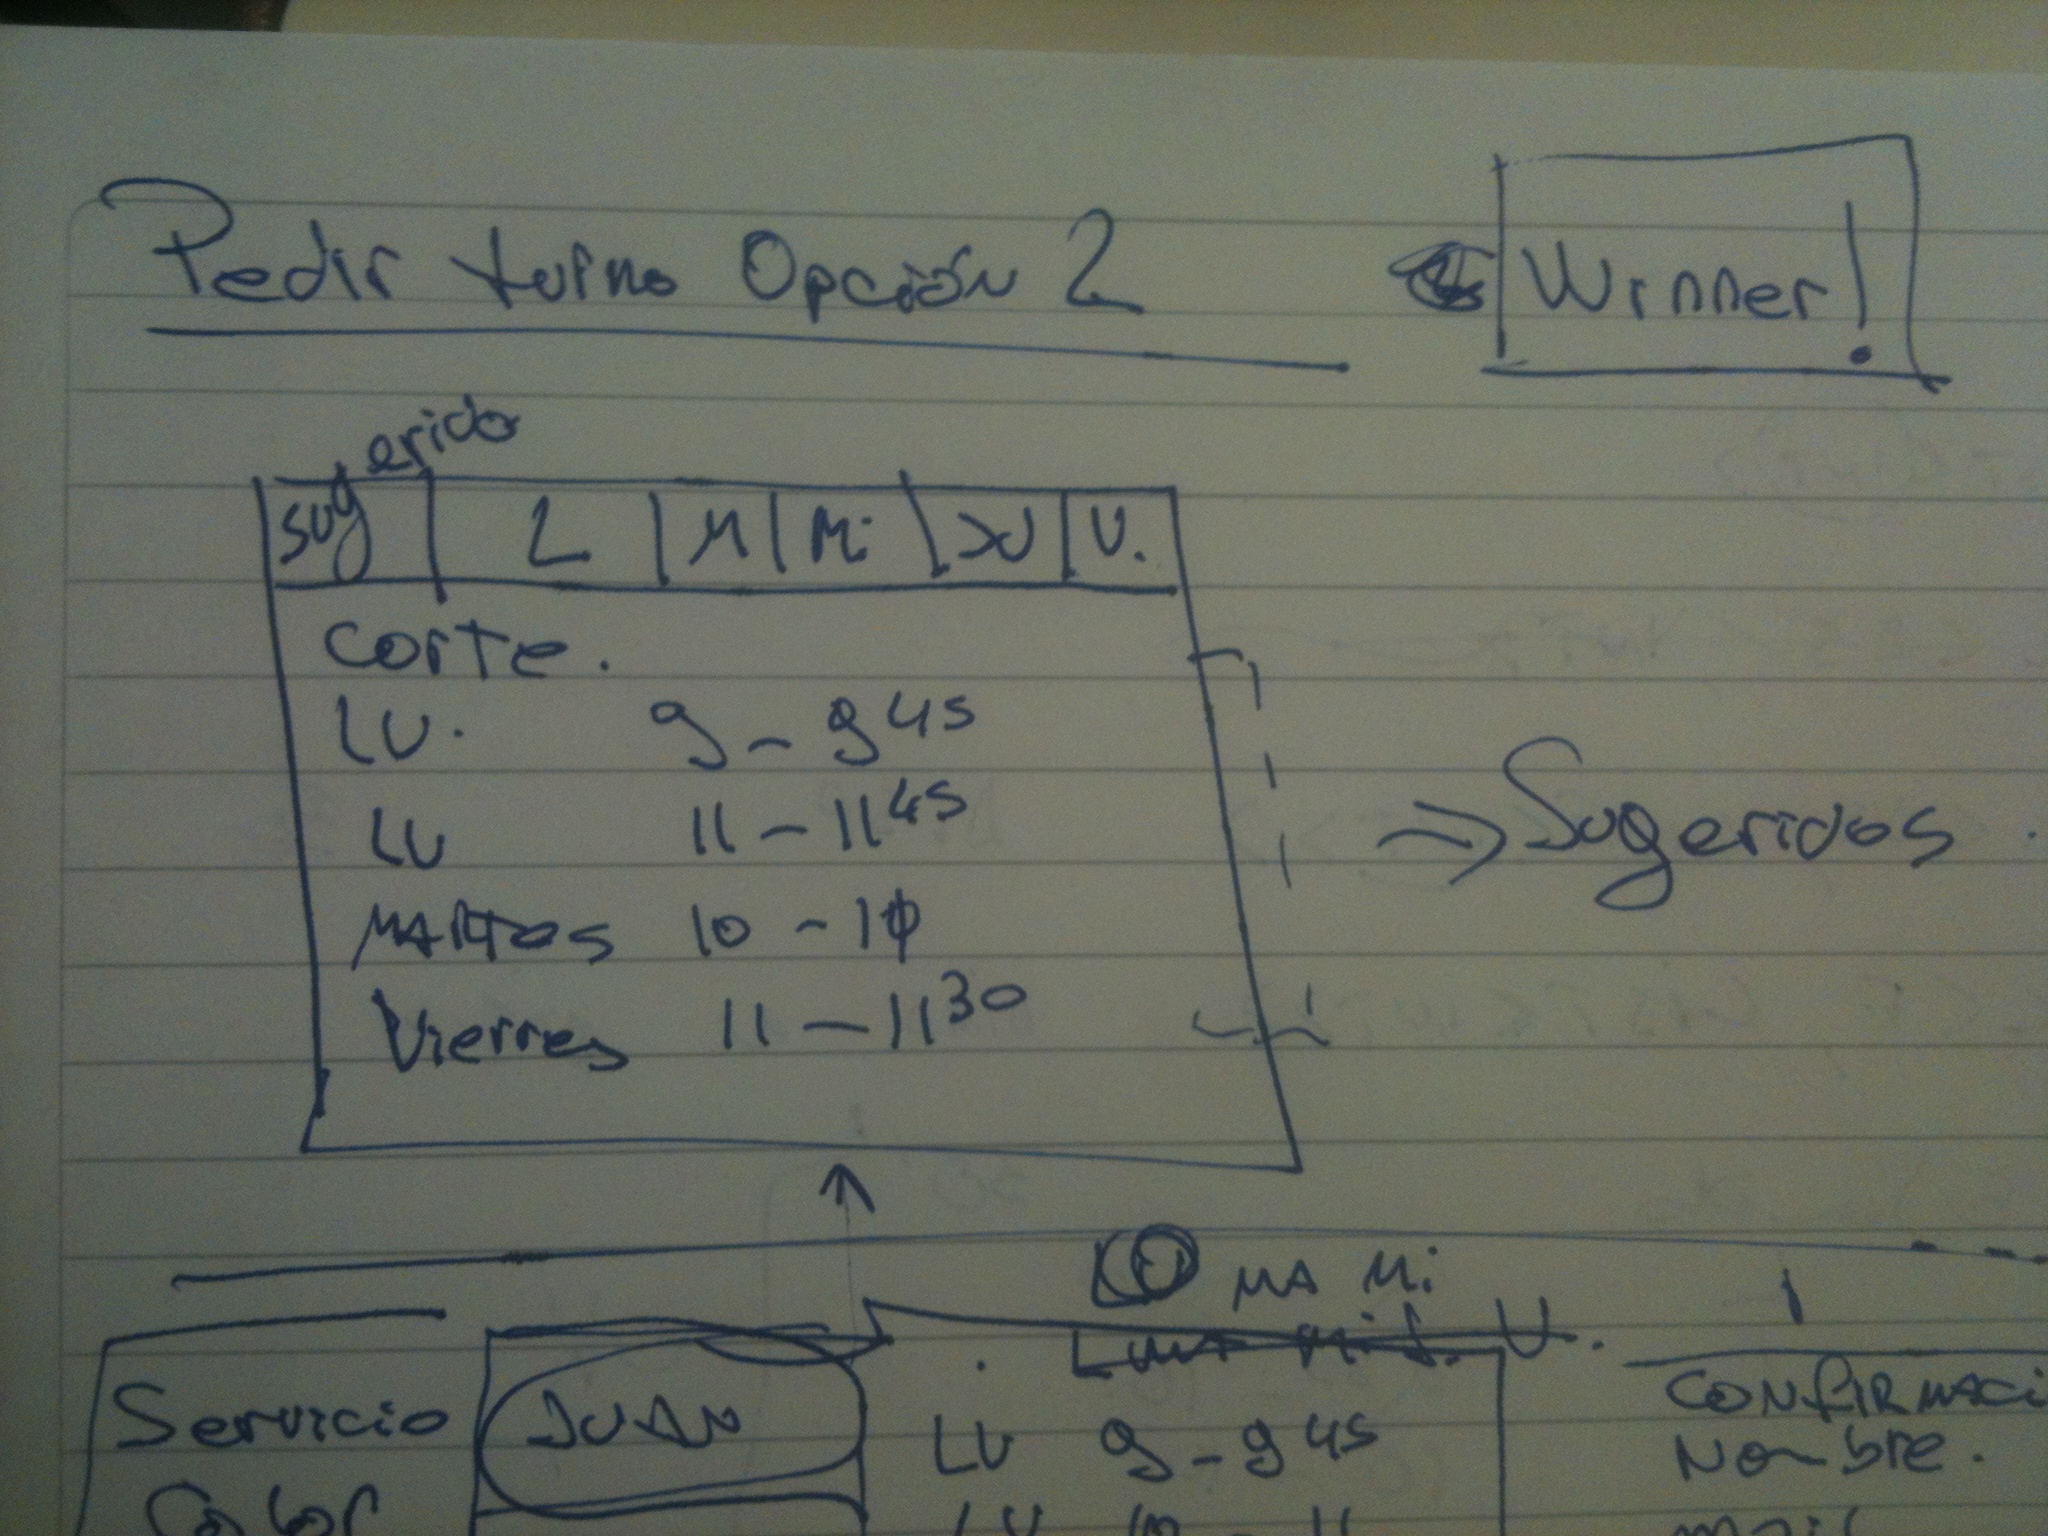 Pedir turno Opción 2
Winner!
Sugerido | L | M | Mi | JU | V.
Corte.
LU. 9 - 945
LU 11 - 1145
MARtes 10 -
Viernes 11 - 1130
→ Sugeridos
MA Mi.
Servicio
JUAN
LU 9 - 945
LU
CONfIRMACI
Nombre.